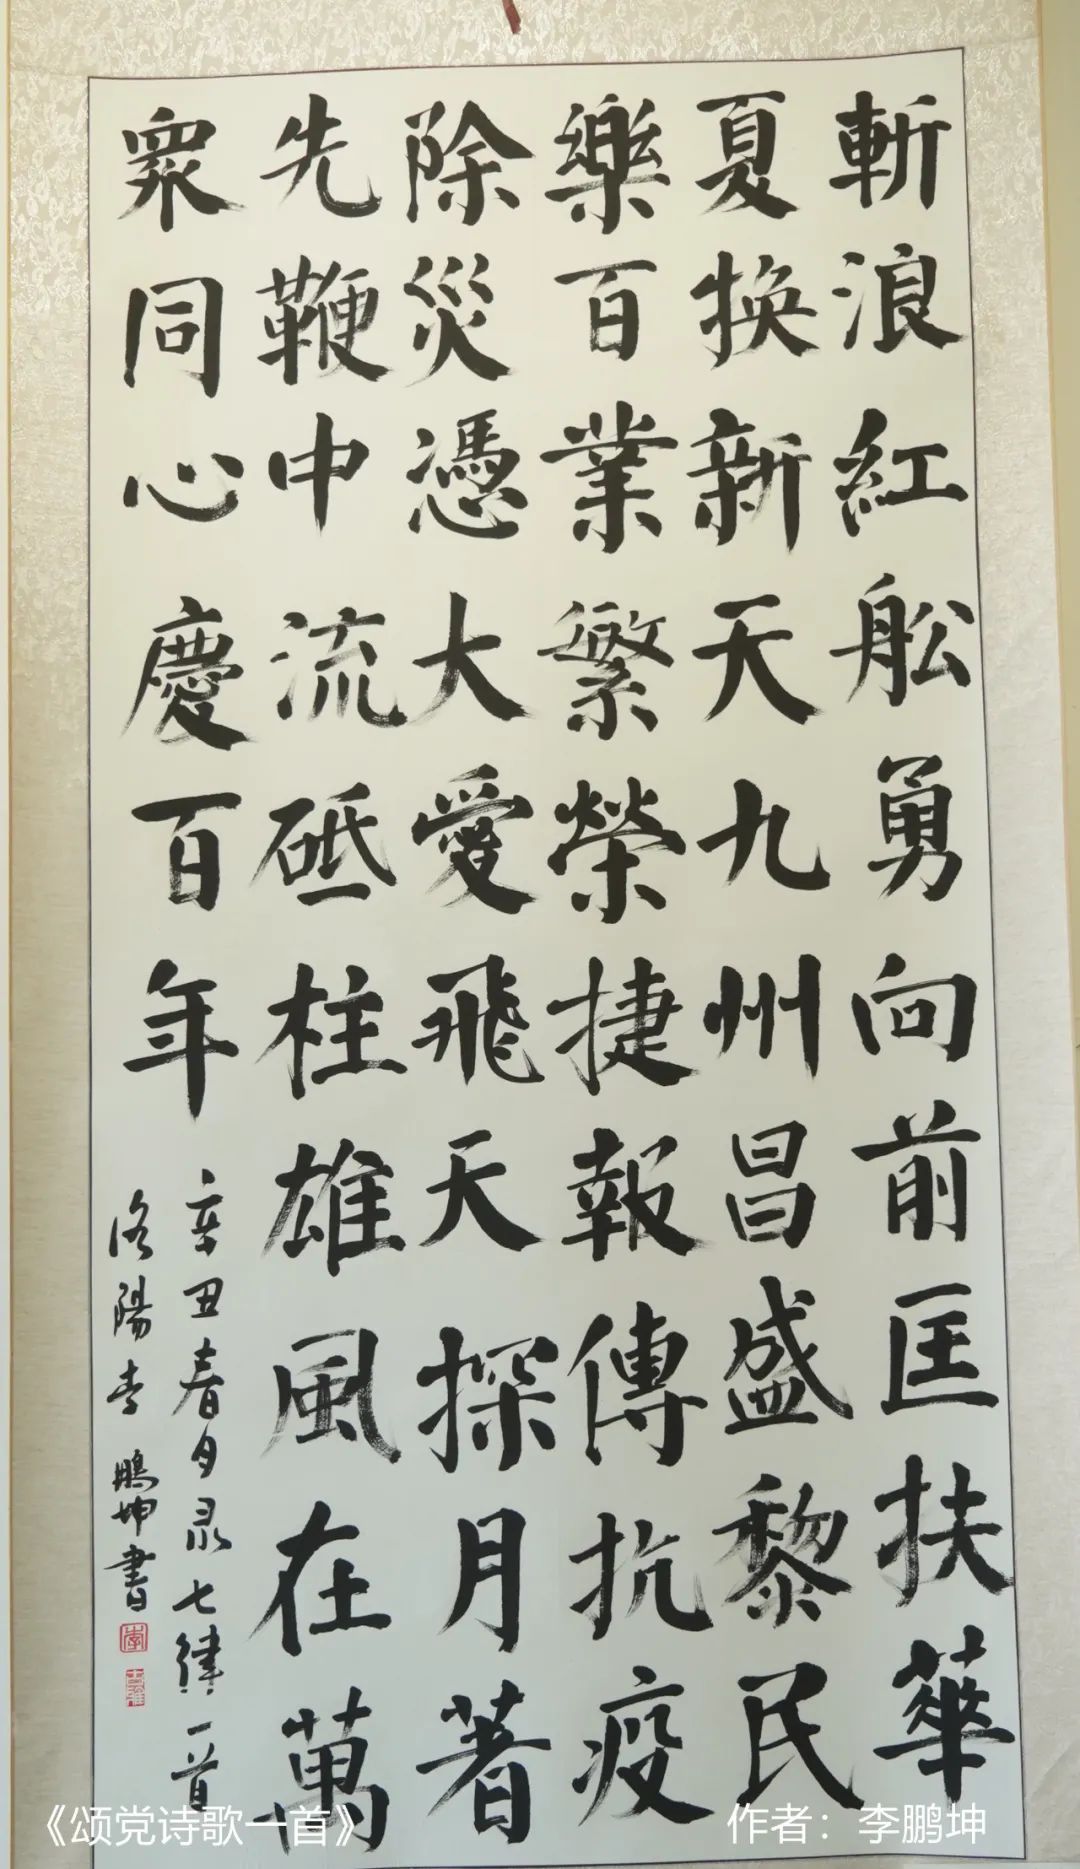 斬浪紅舩勇向前匡扶華
夏换新天九州昌盛黎民
樂百業繁榮捷報傳抗疫
除災憑大愛飛天探月著
先鞭中流砥柱雄風在萬
衆同心慶百年
辛丑春月录七律一首
洛陽李鵬坤書
《颂党诗歌一首》
作者：李鹏坤